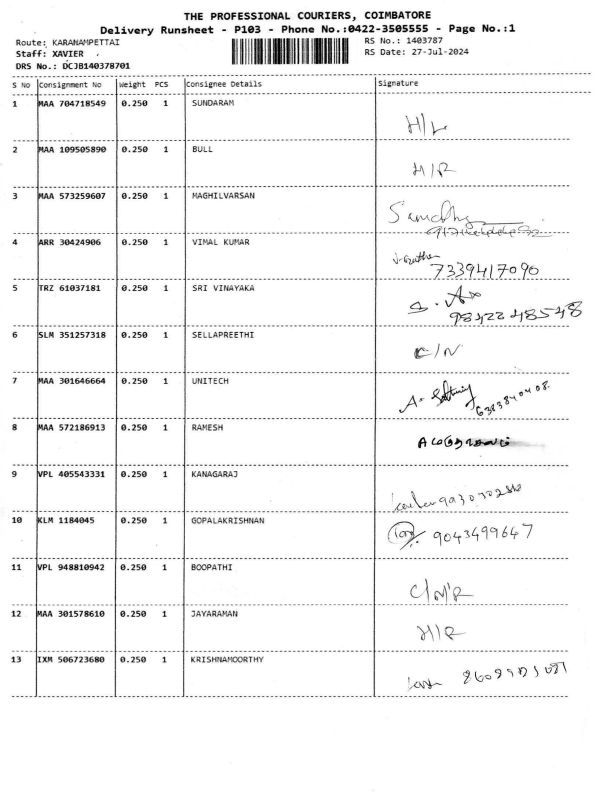 THE PROFESSIONAL COURIERS, COIMBATORE
Delivery Runsheet - P103 - Phone No.:0422-3505555 - Page No.:1
Route: KARANAMPETTAI
RS No.: 1403787
Staff: XAVIER
RS Date: 27-Jul-2024
DRS No.: DCJB140378701
S No Consignment No Weight PCS Consignee Details Signature
1 MAA 704718549 0.250 1 SUNDARAM
H/L
2 MAA 109505890 0.250 1 BULL
H/R
3 MAA 573259607 0.250 1 MAGHILVARSAN
4 ARR 30424906 0.250 1 VIMAL KUMAR
7339417090
5 TRZ 61037181 0.250 1 SRI VINAYAKA
9842248548
6 SLM 351257318 0.250 1 SELLAPREETHI
C/N
7 MAA 301646664 0.250 1 UNITECH
8 MAA 572186913 0.250 1 RAMESH
9 VPL 405543331 0.250 1 KANAGARAJ
10 KLM 1184045 0.250 1 GOPALAKRISHNAN
9043499647
11 VPL 948810942 0.250 1 BOOPATHI
C/N'R
12 MAA 301578610 0.250 1 JAYARAMAN
H/R
13 IXM 506723680 0.250 1 KRISHNAMOORTHY